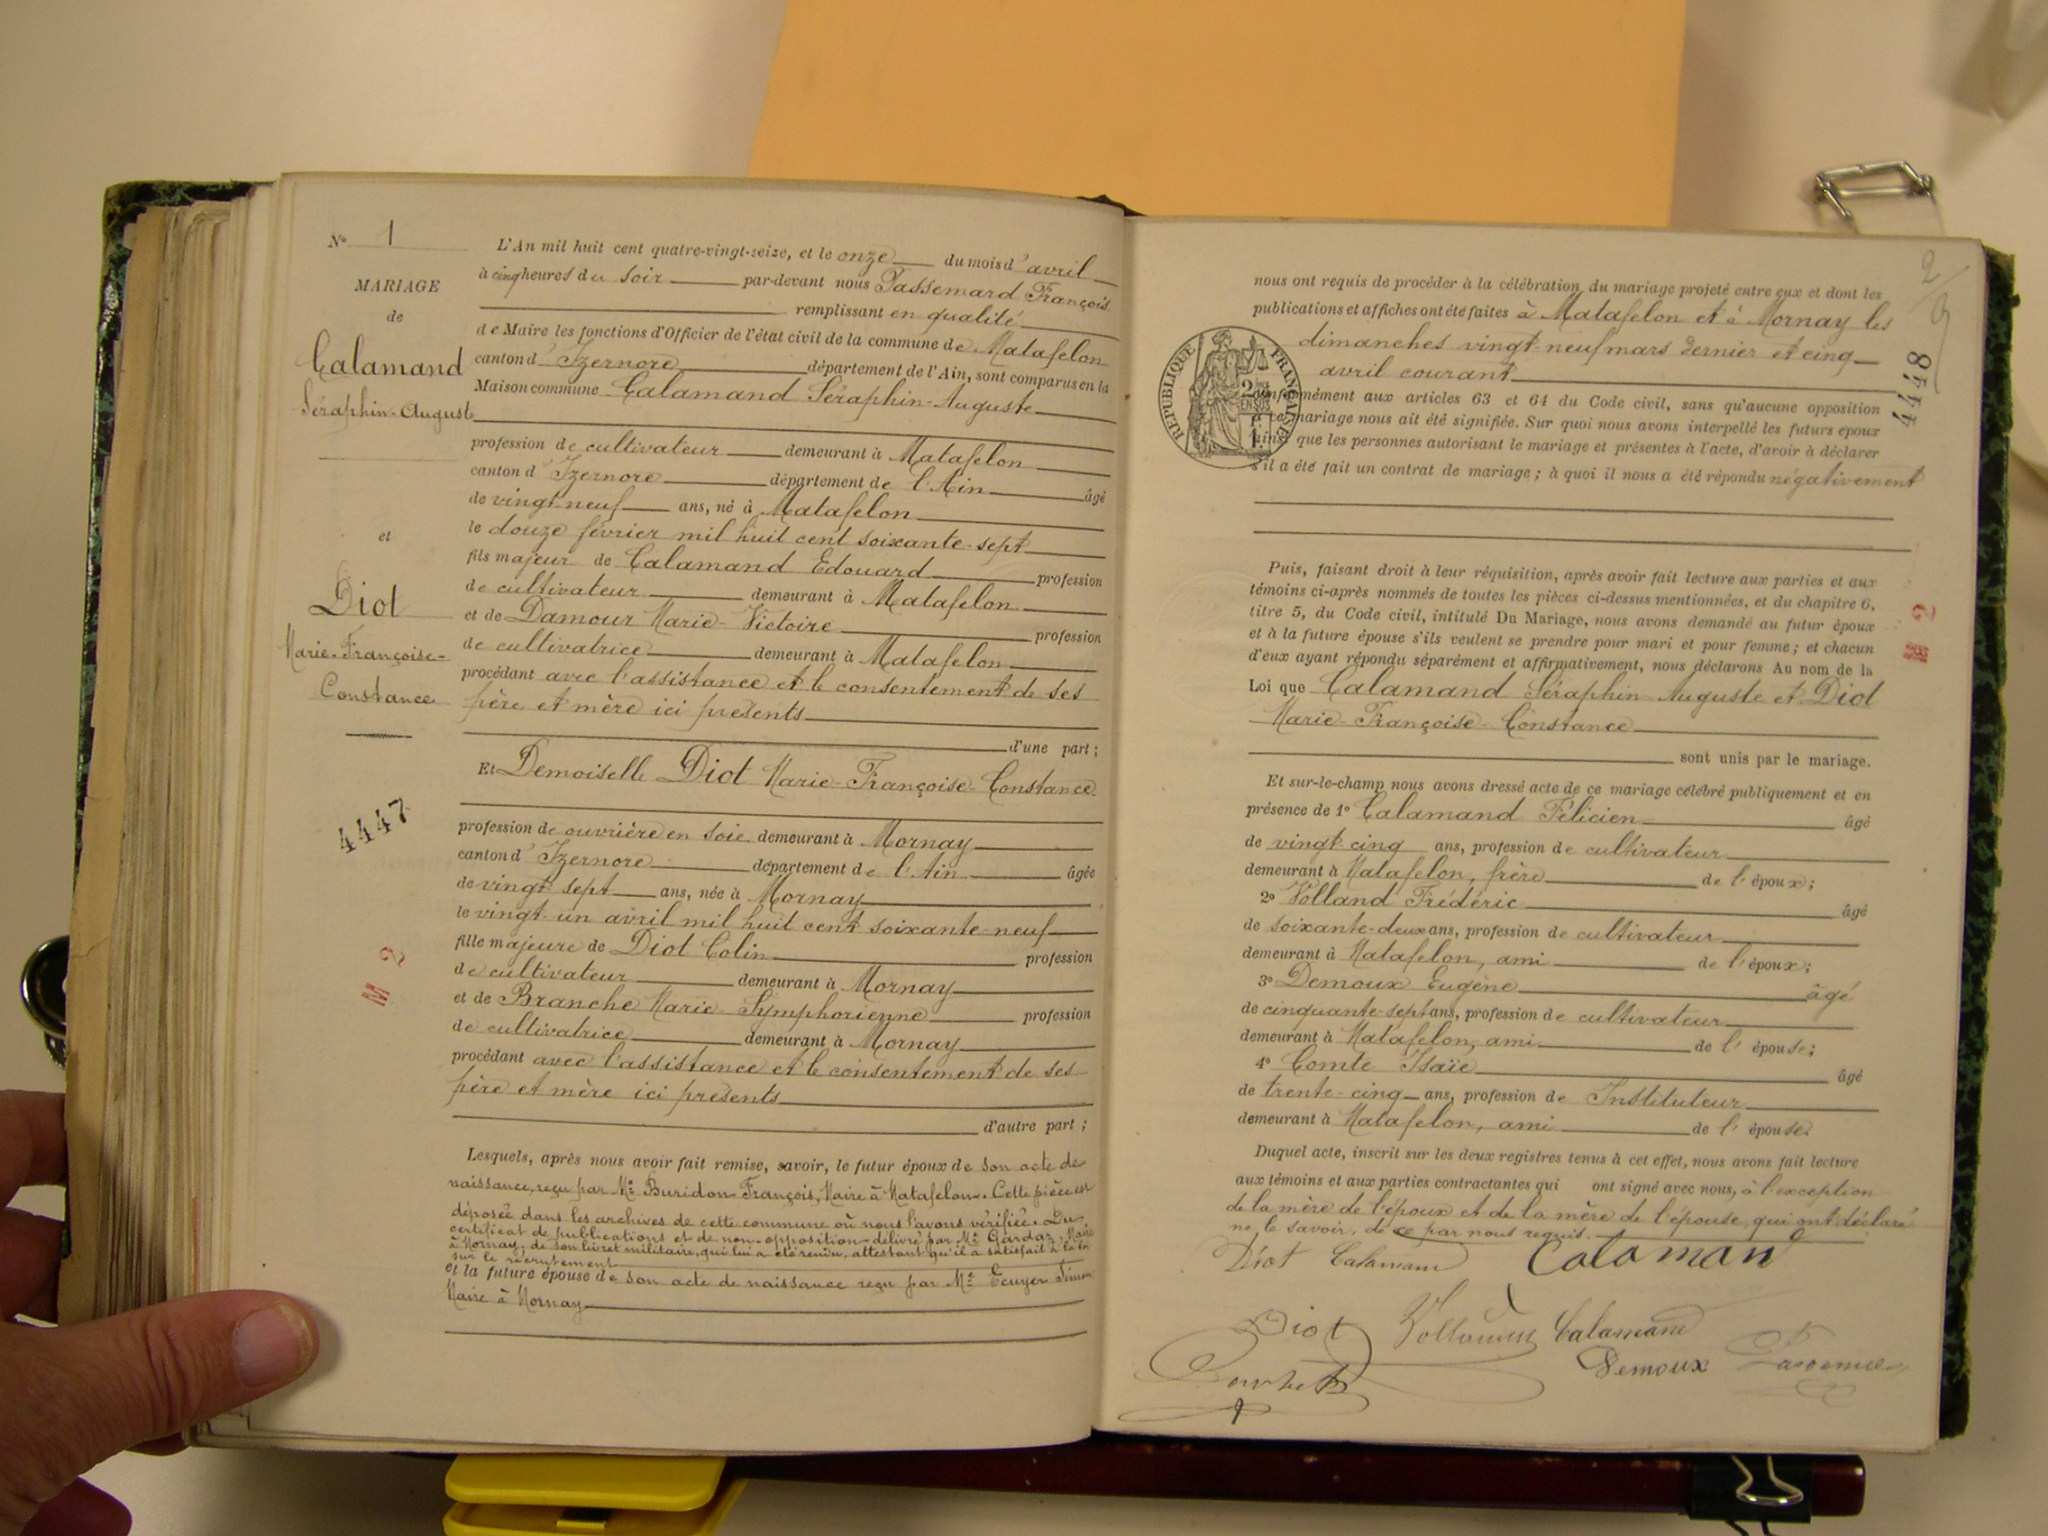 Nº 1
MARIAGE
de
Calamand
Séraphin-Auguste
et
Diot
Marie-Françoise-
Constance
4447
M 2
L'An mil huit cent quatre-vingt-seize, et le onze du mois d'avril
à cinq heures du soir par-devant nous Passemard François
remplissant en qualité
de Maire les fonctions d'Officier de l'état civil de la commune de Matafelon
canton d'Izernore département de l'Ain, sont comparus en la
Maison commune Calamand Séraphin-Auguste
profession de cultivateur demeurant à Matafelon
canton d'Izernore département de l'Ain âgé
de vingt-neuf ans, né à Matafelon
le douze février mil huit cent soixante-sept
fils majeur de Calamand Edouard profession
de cultivateur demeurant à Matafelon
et de Damour Marie-Victoire profession
de cultivatrice demeurant à Matafelon
procédant avec l'assistance et le consentement de ses
père et mère ici présents
d'une part ;
Et Demoiselle Diot Marie-Françoise-Constance
profession de ouvrière en soie demeurant à Mornay
canton d'Izernore département de l'Ain âgée
de vingt-sept ans, née à Mornay
le vingt-un avril mil huit cent soixante-neuf
fille majeure de Diot Colin profession
de cultivateur demeurant à Mornay
et de Branche Marie-Symphorienne profession
de cultivatrice demeurant à Mornay
procédant avec l'assistance et le consentement de ses
père et mère ici présents
d'autre part ;
Lesquels, après nous avoir fait remise, savoir, le futur époux de son acte de
naissance, reçu par Mr Buridon François, Maire à Matafelon. Cette pièce est
déposée dans les archives de cette commune où nous l'avons vérifiée. Du
certificat de publications et de non-opposition délivré par Mr Gardaz, Maire
à Mornay, de son livret militaire, qui lui a été rendu, attestant qu'il a satisfait à la loi
sur le recrutement
et la future épouse de son acte de naissance reçu par Mr Ecuyer Simon
Maire à Mornay
2
4448
M 2
REPUBLIQUE FRANÇAISE
nous ont requis de procéder à la célébration du mariage projeté entre eux et dont les
publications et affiches ont été faites à Matafelon et à Mornay les
dimanches vingt-neuf mars dernier et cinq
avril courant
conformément aux articles 63 et 64 du Code civil, sans qu'aucune opposition
mariage nous ait été signifiée. Sur quoi nous avons interpellé les futurs époux
ainsi que les personnes autorisant le mariage et présentes à l'acte, d'avoir à déclarer
s'il a été fait un contrat de mariage ; à quoi il nous a été répondu négativement
Puis, faisant droit à leur réquisition, après avoir fait lecture aux parties et aux
témoins ci-après nommés de toutes les pièces ci-dessus mentionnées, et du chapitre 6,
titre 5, du Code civil, intitulé Du Mariage, nous avons demandé au futur époux
et à la future épouse s'ils veulent se prendre pour mari et pour femme ; et chacun
d'eux ayant répondu séparément et affirmativement, nous déclarons Au nom de la
Loi que Calamand Séraphin-Auguste et Diot
Marie-Françoise-Constance
sont unis par le mariage.
Et sur-le-champ nous avons dressé acte de ce mariage célébré publiquement et en
présence de 1º Calamand Félicien âgé
de vingt-cinq ans, profession de cultivateur
demeurant à Matafelon, frère de l'époux ;
2º Volland Frédéric âgé
de soixante-deux ans, profession de cultivateur
demeurant à Matafelon, ami de l'époux ;
3º Demoux Eugène âgé
de cinquante-sept ans, profession de cultivateur
demeurant à Matafelon, ami de l'épouse ;
4º Comte Isaïe âgé
de trente-cinq ans, profession de Instituteur
demeurant à Matafelon, ami de l'épouse.
Duquel acte, inscrit sur les deux registres tenus à cet effet, nous avons fait lecture
aux témoins et aux parties contractantes qui ont signé avec nous, à l'exception
de la mère de l'époux et de la mère de l'épouse, qui ont déclaré
ne le savoir, de ce par nous requis.
Diot Calamand Calamand
Diot Calamand
Demoux